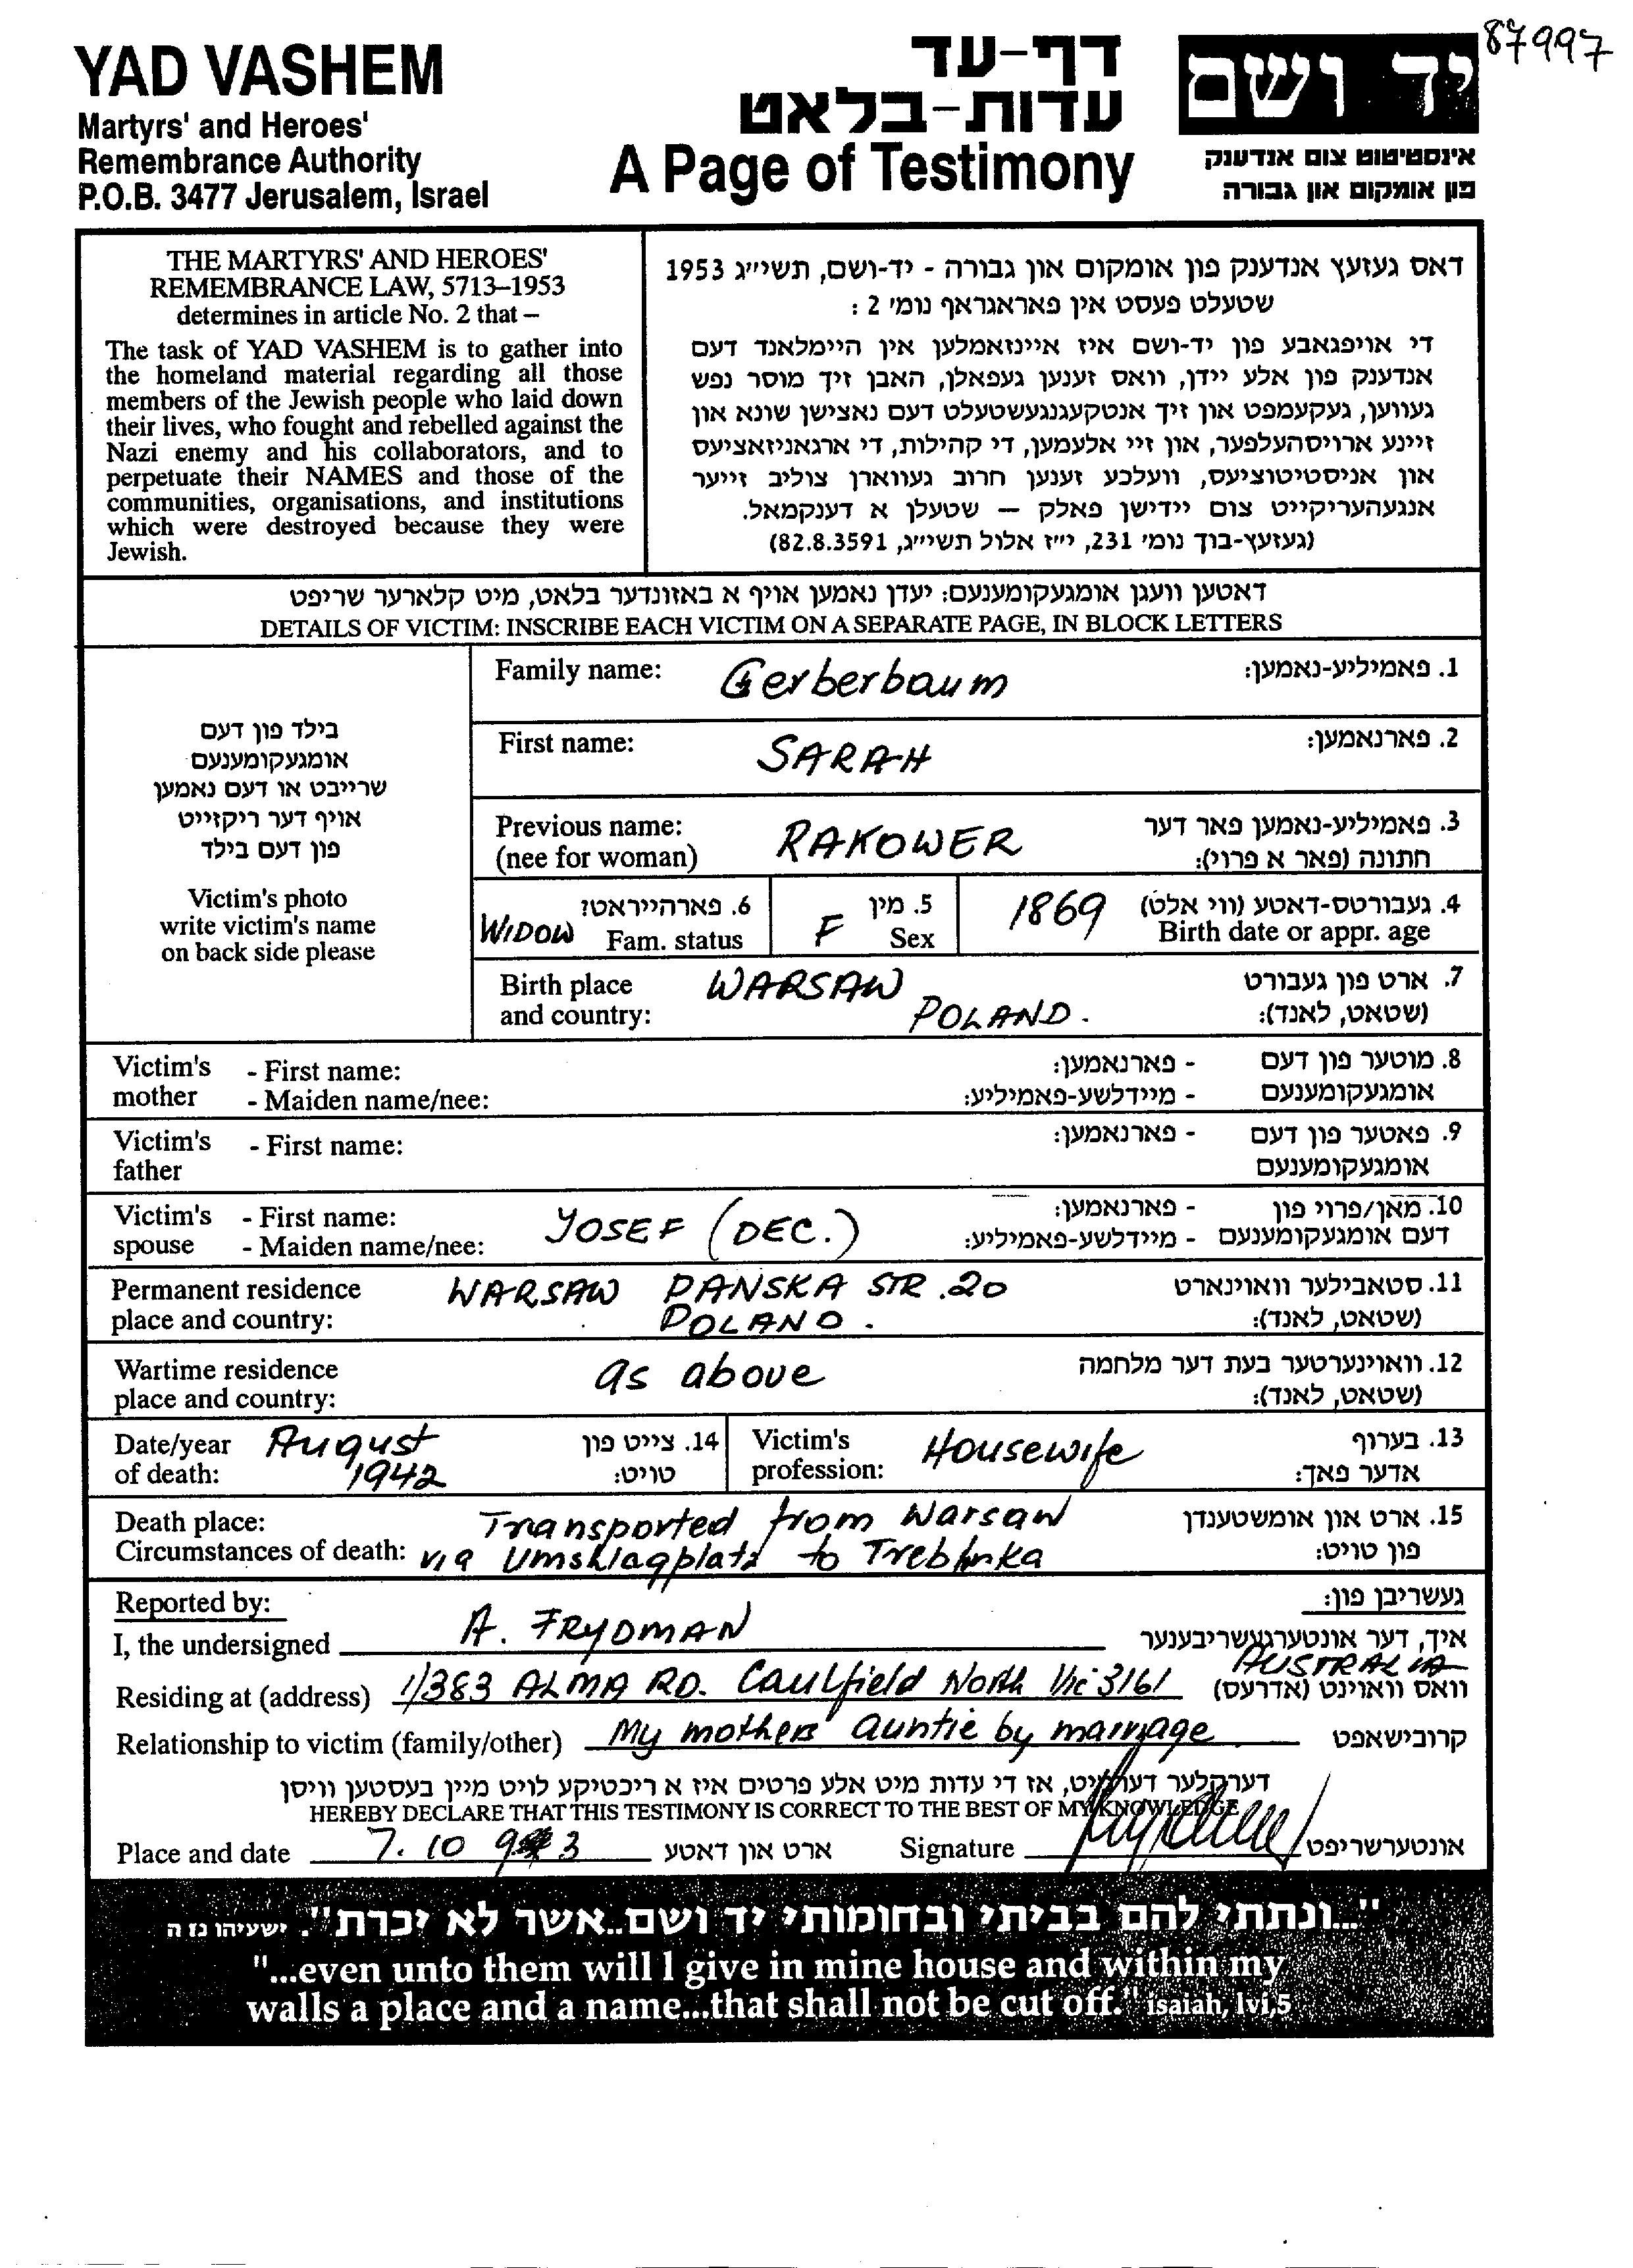 87997
YAD VASHEM
Martyrs' and Heroes'
Remembrance Authority
P.O.B. 3477 Jerusalem, Israel
דף-עד
עדות-בלאט
A Page of Testimony
יד ושם
אינסטיטוט צום אנדענק
פון אומקום און גבורה
THE MARTYRS' AND HEROES'
REMEMBRANCE LAW, 5713–1953
determines in article No. 2 that –
The task of YAD VASHEM is to gather into
the homeland material regarding all those
members of the Jewish people who laid down
their lives, who fought and rebelled against the
Nazi enemy and his collaborators, and to
perpetuate their NAMES and those of the
communities, organisations, and institutions
which were destroyed because they were
Jewish.
דאס געזעץ אנדענק פון אומקום און גבורה - יד-ושם, תשי״ג 1953
שטעלט פעסט אין פאראגראף נומ׳ 2 :
די אויפגאבע פון יד-ושם איז איינזאמלען אין היימלאנד דעם
אנדענק פון אלע יידן, וואס זענען געפאלן, האבן זיך מוסר נפש
געווען, געקעמפט און זיך אנטקעגנגעשטעלט דעם נאצישן שונא און
זיינע ארויסהעלפער, און זיי אלעמען, די קהילות, די ארגאניזאציעס
און אניסטיטוציעס, וועלכע זענען חרוב געווארן צוליב זייער
אנגעהעריקייט צום יידישן פאלק — שטעלן א דענקמאל.
(געזעץ-בוך נומ׳ 231, י״ז אלול תשי״ג, 82.8.3591)
דאטען וועגן אומגעקומענעם: יעדן נאמען אויף א באזונדער בלאט, מיט קלארער שריפט
DETAILS OF VICTIM: INSCRIBE EACH VICTIM ON A SEPARATE PAGE, IN BLOCK LETTERS
בילד פון דעם
אומגעקומענעם
שרייבט או דעם נאמען
אויף דער ריקזייט
פון דעם בילד
Victim's photo
write victim's name
on back side please
Family name: Gerberbaum 1. פאמיליע-נאמען:
First name: SARAH 2. פארנאמען:
Previous name: RAKOWER 3. פאמיליע-נאמען פאר דער
(nee for woman) חתונה (פאר א פרוי):
WIDOW 6. פארהייראט? F 5. מין 1869 4. געבורטס-דאטע (ווי אלט)
Fam. status Sex Birth date or appr. age
Birth place WARSAW 7. ארט פון געבורט
and country: POLAND. (שטאט, לאנד):
Victim's - First name: - פארנאמען: 8. מוטער פון דעם
mother - Maiden name/nee: - מיידלשע-פאמיליע: אומגעקומענעם
Victim's - First name: - פארנאמען: 9. פאטער פון דעם
father אומגעקומענעם
Victim's - First name: YOSEF (DEC.) - פארנאמען: 10. מאן/פרוי פון
spouse - Maiden name/nee: - מיידלשע-פאמיליע: דעם אומגעקומענעם
Permanent residence WARSAW PANSKA STR. 20 11. סטאבילער וואוינארט
place and country: POLAND. (שטאט, לאנד):
Wartime residence as above 12. וואוינערטער בעת דער מלחמה
place and country: (שטאט, לאנד):
Date/year August 14. צייט פון Victim's Housewife 13. בערוף
of death: 1942 טויט: profession: אדער פאך:
Death place: Transported from Warsaw 15. ארט און אומשטענדן
Circumstances of death: via Umshlagplatz to Treblinka פון טויט:
Reported by: געשריבן פון:
I, the undersigned A. FRYDMAN איך, דער אונטערגעשריבענער
AUSTRALIA
Residing at (address) 1/383 ALMA RD. Caulfield North Vic 3161 וואס וואוינט (אדרעס)
Relationship to victim (family/other) My mothers' auntie by marriage קרובישאפט
דערקלער דערמיט, אז די עדות מיט אלע פרטים איז א ריכטיקע לויט מיין בעסטען וויסן
HEREBY DECLARE THAT THIS TESTIMONY IS CORRECT TO THE BEST OF MY KNOWLEDGE
Place and date 7. 10 93 ארט און דאטע Signature אונטערשריפט
"...ונתתי להם בביתי ובחומותי יד ושם..אשר לא יכרת". ישעיהו נז ה
"...even unto them will I give in mine house and within my
walls a place and a name...that shall not be cut off." isaiah, lvi,5